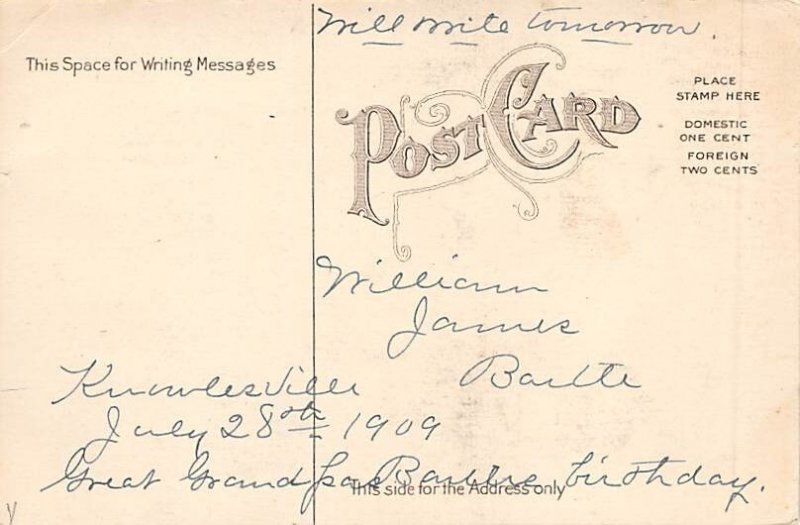 Will write tomorrow.
This Space for Writing Messages
POST CARD
PLACE
STAMP HERE
DOMESTIC
ONE CENT
FOREIGN
TWO CENTS
William
James
Bartte
Knowlesville
July 28th 1909
Great Grandpas birthday.
This side for the Address only